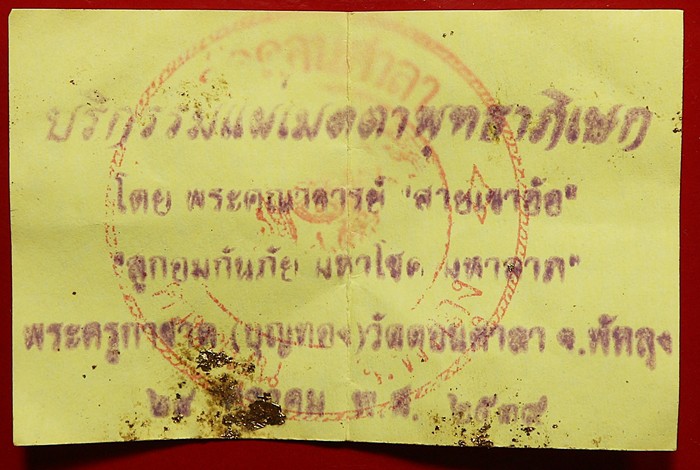 วัดดอนศาลา
บริกรรมแผ่เมตตาพุทธาภิเษก
โดย พระคณาจารย์ "สายเขาอ้อ"
"ลูกอมกันภัย มหาโชค มหาลาภ"
พระครูกาชาด (บุญทอง) วัดดอนศาลา จ.พัทลุง
พ.ศ. ๒๕๓๙